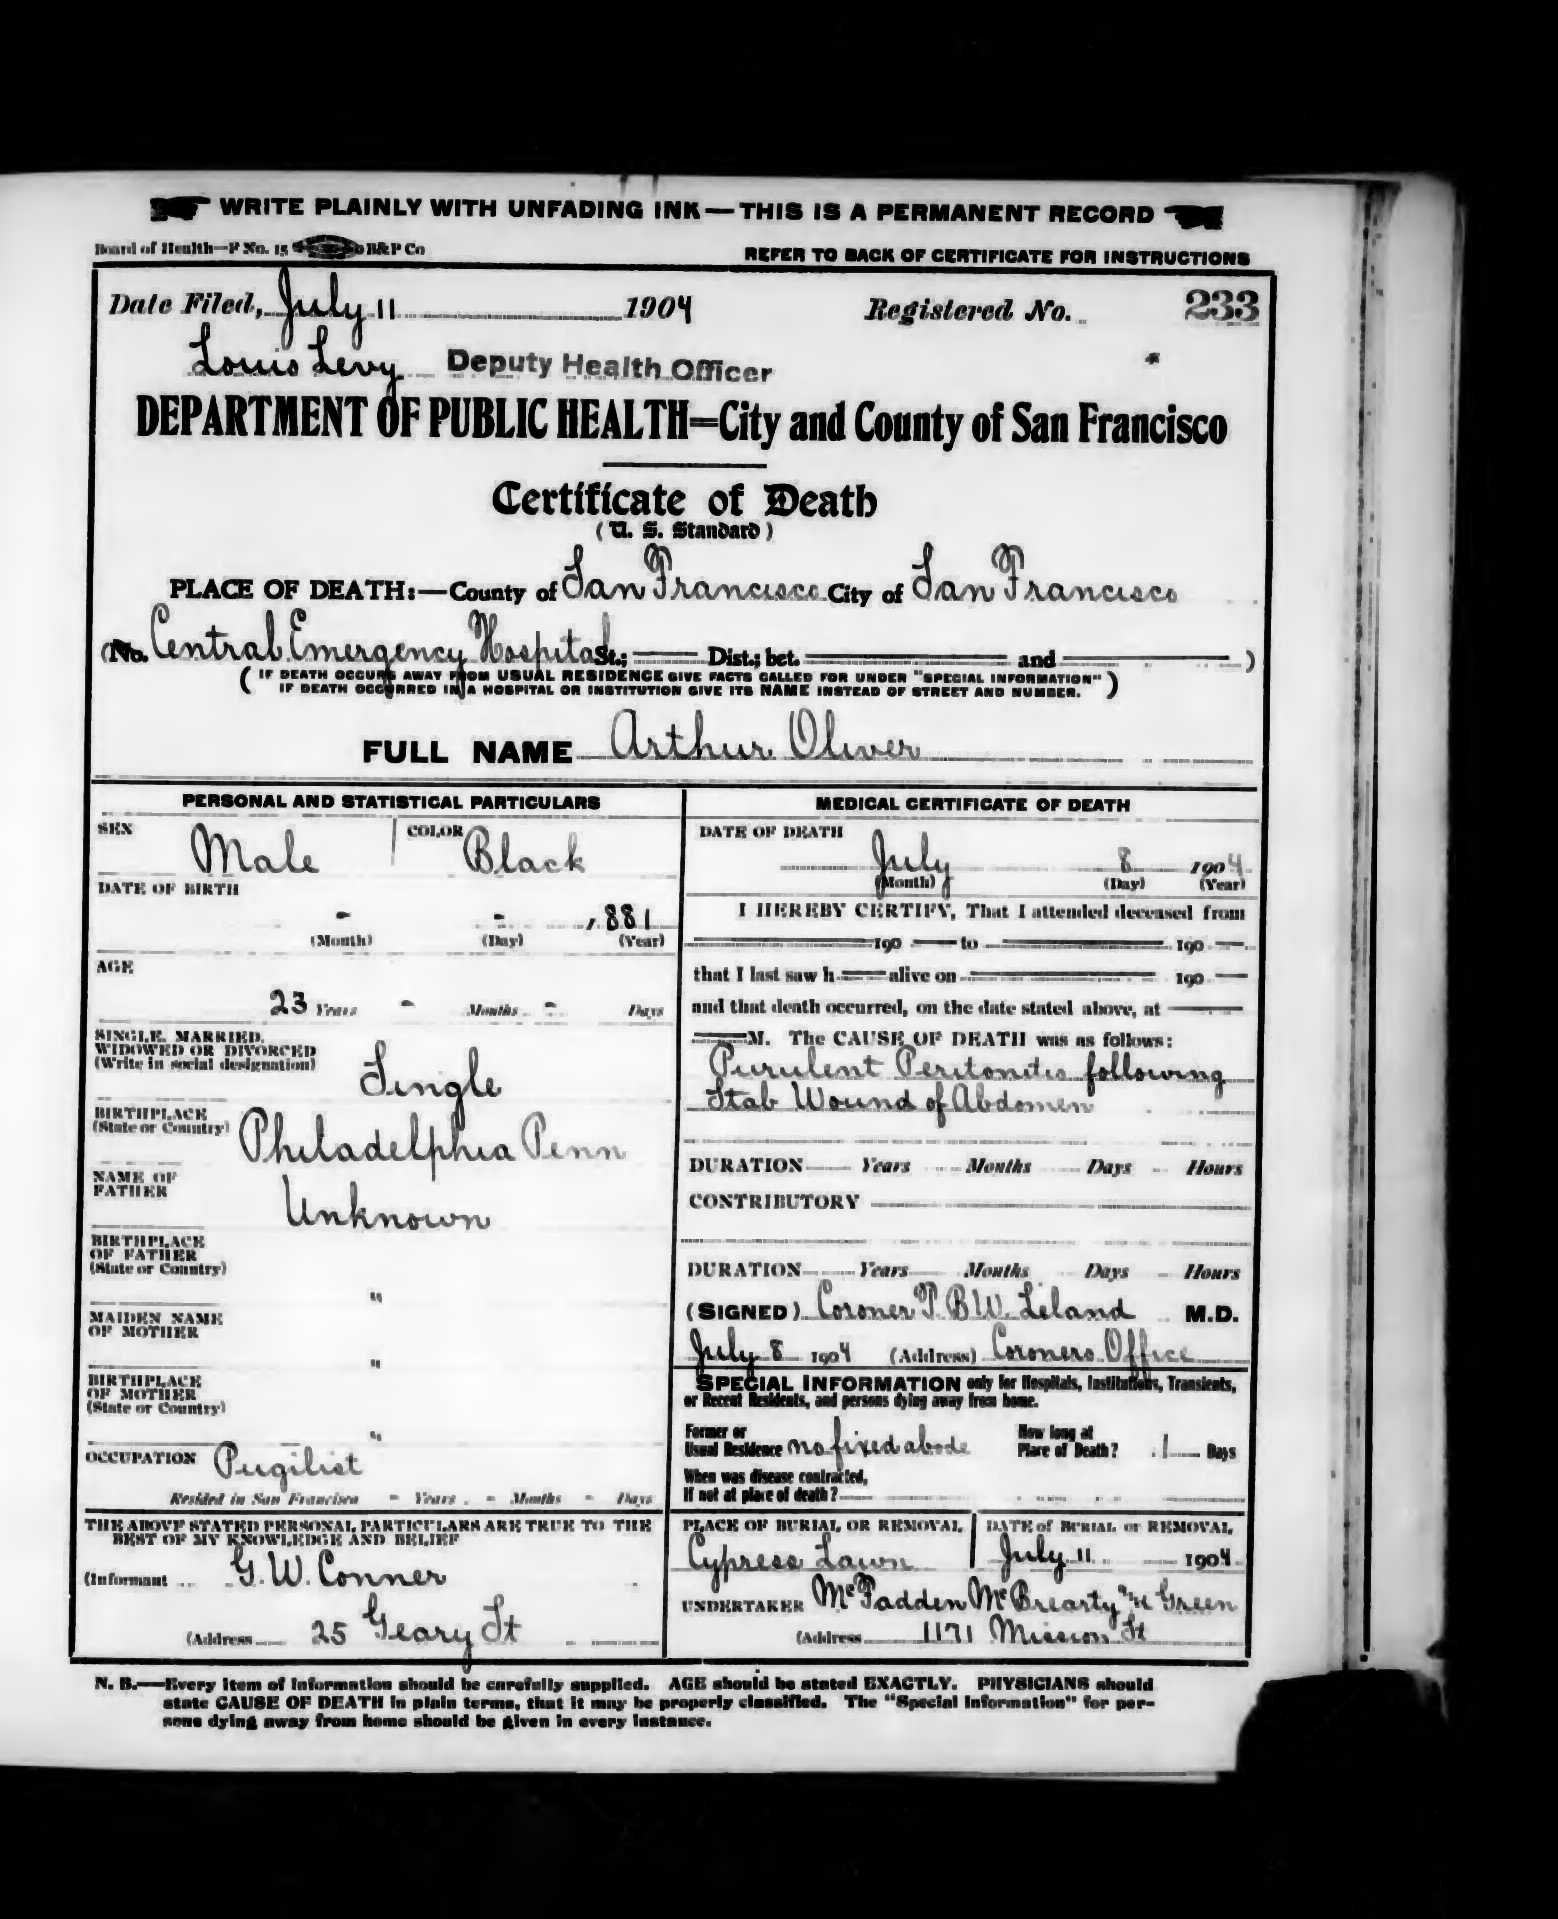 WRITE PLAINLY WITH UNFADING INK—THIS IS A PERMANENT RECORD
Board of Health—F No. 15 B&P Co
REFER TO BACK OF CERTIFICATE FOR INSTRUCTIONS
Date Filed, July 11 1904 Registered No. 233
Louis Levy Deputy Health Officer
DEPARTMENT OF PUBLIC HEALTH=City and County of San Francisco
Certificate of Death
(U. S. Standard)
PLACE OF DEATH:—County of San Francisco City of San Francisco
(No. Central Emergency Hospital St.; Dist.; bet. and )
(IF DEATH OCCURS AWAY FROM USUAL RESIDENCE GIVE FACTS CALLED FOR UNDER "SPECIAL INFORMATION"
IF DEATH OCCURRED IN A HOSPITAL OR INSTITUTION GIVE ITS NAME INSTEAD OF STREET AND NUMBER.)
FULL NAME Arthur Oliver
PERSONAL AND STATISTICAL PARTICULARS
SEX Male COLOR Black
DATE OF BIRTH
- - 1881
(Month) (Day) (Year)
AGE
23 Years - Months - Days
SINGLE, MARRIED,
WIDOWED OR DIVORCED
(Write in social designation) Single
BIRTHPLACE
(State or Country) Philadelphia Penn
NAME OF
FATHER Unknown
BIRTHPLACE
OF FATHER
(State or Country) "
MAIDEN NAME
OF MOTHER "
BIRTHPLACE
OF MOTHER
(State or Country) "
OCCUPATION Pugilist
Resided in San Francisco - Years - Months - Days
THE ABOVE STATED PERSONAL PARTICULARS ARE TRUE TO THE
BEST OF MY KNOWLEDGE AND BELIEF
(Informant G. W. Conner
(Address 25 Geary St
MEDICAL CERTIFICATE OF DEATH
DATE OF DEATH
July 8 1904
(Month) (Day) (Year)
I HEREBY CERTIFY, That I attended deceased from
190 to 190
that I last saw h alive on 190
and that death occurred, on the date stated above, at
M. The CAUSE OF DEATH was as follows:
Purulent Peritonitis following
Stab Wound of Abdomen
DURATION Years Months Days Hours
CONTRIBUTORY
DURATION Years Months Days Hours
(SIGNED) Coroner T. B W. Leland M.D.
July 8 1904 (Address) Coroners Office
SPECIAL INFORMATION only for Hospitals, Institutions, Transients,
or Recent Residents, and persons dying away from home.
Former or
Usual Residence no fixed abode
How long at
Place of Death? 1 Days
When was disease contracted,
If not at place of death?
PLACE OF BURIAL OR REMOVAL
Cypress Lawn
DATE of BURIAL or REMOVAL
July 11 1904
UNDERTAKER McFadden McBrearty & Green
(Address 1171 Mission St
N. B.—Every item of information should be carefully supplied. AGE should be stated EXACTLY. PHYSICIANS should
state CAUSE OF DEATH in plain terms, that it may be properly classified. The "Special Information" for per-
sons dying away from home should be given in every instance.